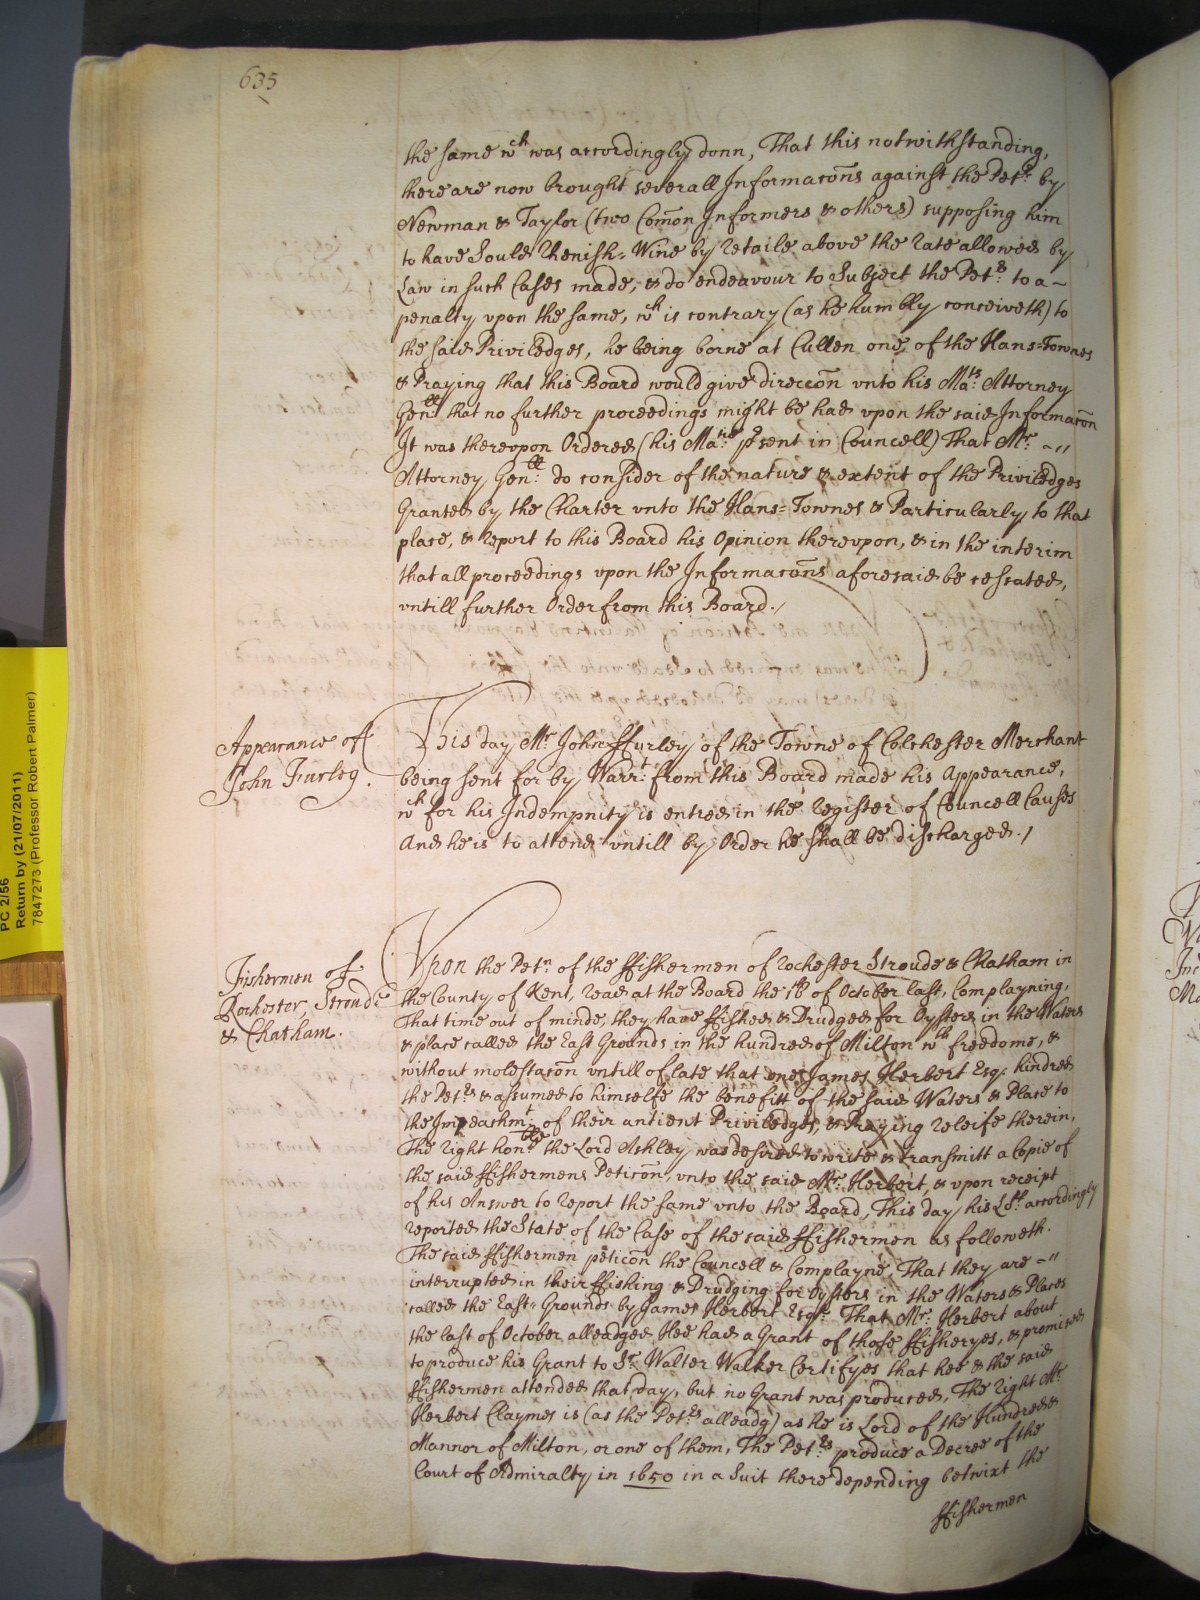 635
the same wch was accordingly donn, That this notwithstanding,
there are now brought severall Informacõns against the Petr. by
Newman & Taylor (two Comõn Informers & others) supposing him
to have Sould Rhenish-Wine by retaile above the rate allowed by
Law in such Cases made, & do endeavour to Subject the Petr. to a ~
penalty vpon the same, wch is contrary (as he humbly conceiveth) to
the said Priviledges, he being borne at Cullen one of the Hans=Townes
& Praying that this Board would give direccõn vnto his Mats. Attorney
Genll. that no further proceedings might be had vpon the said Informacõn
It was therevpon Ordered (his Matie. pꝛsent in Councell) That Mr. ~"
Attorney Genll. do consider of the nature & extent of the Priviledges
Granted by the Charter vnto the Hans=Townes & Particularly to that
place, & report to this Board his Opinion therevpon, & in the interim
that all proceedings vpon the Informacõns aforesaid be cessated,
vntill further Order from this Board./
Appearance of
John Furley.
This day Mr. John ffurley of the Towne of Colchester Merchant
being sent for by Warrt. from this Board made his Appearance,
wch for his Indempnity is entred in the register of Councell Causes
And he is to attend vntill by Order he shall be discharged./
Fishermen of
Rochester, Stroude
& Chatham.
Vpon the Petn. of the ffishermen of rochester Stroude & Chatham in
the County of Kent, read at the Board the 1th of October last, Complayning,
That time out of minde, they have ffished & Drudged for Oysters in the Waters
& place called the East Grounds in the hundred of Milton wth freedome, &
without molestacõn vntill of late that one James Herbert Esqr. hindred
the Petrs. & assumed to himselfe the benefitt of the said Waters & Place to
the Impeachmt. of their antient Priviledges, & Praying releife therein,
The right honoble. the Lord Ashley was desired to write & transmitt a Copie of
the said ffishermens Peticõn, vnto the said Mr. Herbert, & vpon receipt
of his Answer to report the same vnto the Board, This day his Lopp. accordingly
reported the State of the Case of the said ffishermen as followeth.
The said ffishermen peticõn the Councell & Complayne, That they are ~"
interrupted in their ffishing & Drudging for Oysters in the Waters & Places
called the East-Grounds by James Herbert Esqr. That Mr. Herbert about
the last of October alleadged Hee had a Grant of those ffisheryes, & promised
to produce his Grant to Sr. Walter Walker Certifyes that hee & the said
ffishermen attended that day, but no Grant was produced, The right Mr.
Herbert Claymes is (as the Petrs. alleadg) as he is Lord of the Hundred &
Mannor of Milton, or one of them, The Petrs. produce a Decree of the
Court of Admiralty in 1650 in a Suit there depending betwixt the
ffishermen
PC 2/56
Return by (21/07/2011)
7847273 (Professor Robert Palmer)